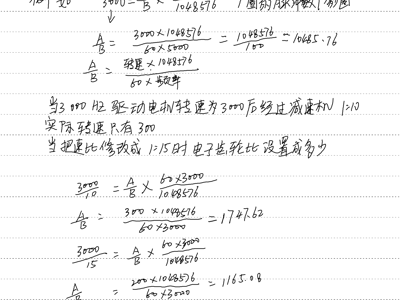 3000 = A/B × 1048576
A/B = 3000×1048576 / 60×5000 = 1048576 / 100 = 10485.76
A/B = 转速×1048576 / 60×频率
当3000HZ 驱动电机转速为3000后经过减速机 1:10
实际转速只有300
当把速比修改成 1:15时电子齿轮比设置成多少
3000/10 = A/B × 60×3000 / 1048576
A/B = 300×1048576 / 60×3000 = 1747.62
3000/15 = A/B × 60×3000 / 1048576
A/B = 200×1048576 / 60×3000 = 1165.08